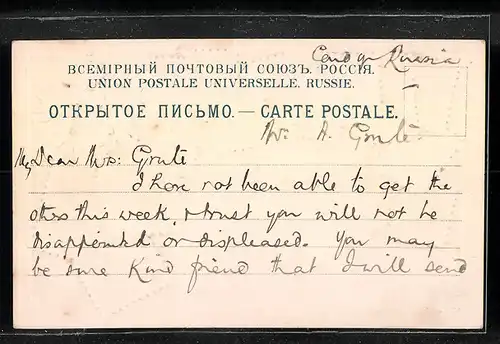 Russia
ВСЕМІРНЫЙ ПОЧТОВЫЙ СОЮЗЪ. РОССІЯ.
UNION POSTALE UNIVERSELLE. RUSSIE.
ОТКРЫТОЕ ПИСЬМО. — CARTE POSTALE.
A. Grute
My Dear Mrs: Grute
I have not been able to get the
others this week, I trust you will not be
disappointed or displeased. You may
be sure Kind friend that I will send